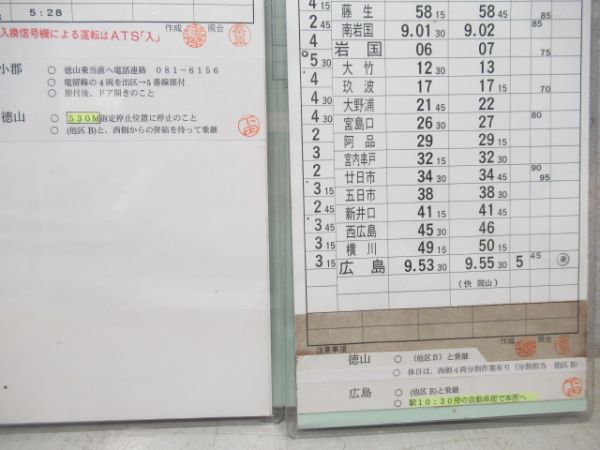 5:28
入換信号機による運転はATS「入」
作成 照合
小郡 ○ 徳山乗当直へ電話連絡 081-6156
○ 電留線の4両を出区→5番線据付
○ 据付後、ドア開きのこと
徳山 ○ 530M指定停止位置に停止のこと
○ (他区B)と、西側からの併結を待って乗継
4 15 藤生 58 15 58 45 85
2 45 南岩国 9.01 30 9.02
4 岩国 06 07
5 30 大竹 12 30 13
4 玖波 17 17 15
4 30 大野浦 21 45 22
4 30 宮島口 26 30 27 80
2 阿品 29 29 15
3 宮内串戸 32 15 32 30
2 廿日市 34 30 34 45 90 95
3 15 五日市 38 38 30
2 45 新井口 41 15 41 45
3 45 西広島 45 30 46
3 横川 49 15 50 15
3 15 広島 9.53 30 9.55 30 5 45
(快 岡山)
注意事項 作成 照合
徳山 ○ (他区B)と乗継
○ 休日は、西側4両分割作業有り(分割担当 他区B)
広島 ○ (他区B)と乗継
○ 駅10:30発の自動車便で本所へ